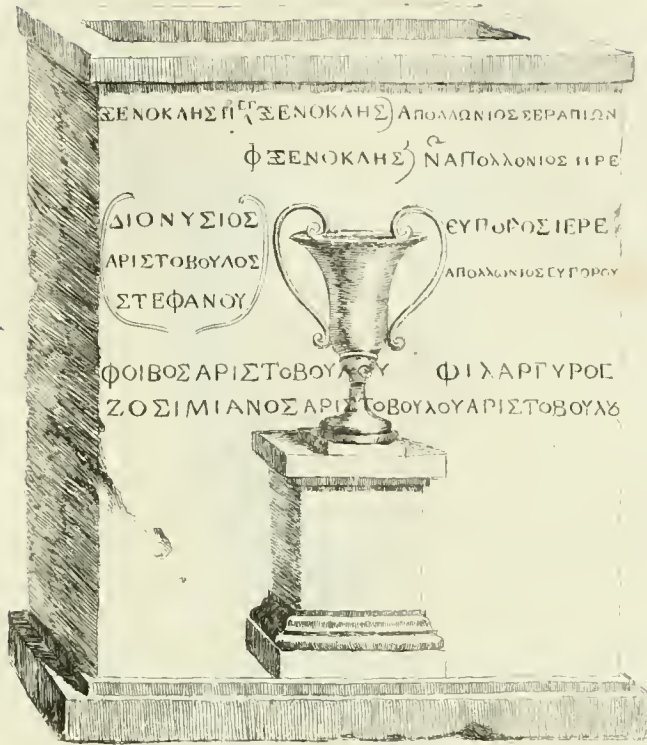 ΞΕΝΟΚΛΗΣ ΞΕΝΟΚΛΗΣ) ΑΠΟΛΛΩΝΙΟΣ ΣΕΡΑΠΙΩΝ
Φ ΞΕΝΟΚΛΗΣ) ΑΠΟΛΛΟΝΙΟΣ
ΔΙΟΝΥΣΙΟΣ
ΑΡΙΣΤΟΒΟΥΛΟΣ
ΣΤΕΦΑΝΟΥ
ΕΥΠΟΡΟΣ ΙΕΡΕ
ΑΠΟΛΛΩΝΙΟΣ ΕΥΠΟΡΟΥ
ΦΟΙΒΟΣ ΑΡΙΣΤΟΒΟΥΛΟΥ ΦΙΛΑΡΓΥΡΟΣ
ΖΟΣΙΜΙΑΝΟΣ ΑΡΙΣΤΟΒΟΥΛΟΥ ΑΡΙΣΤΟΒΟΥΛȣ